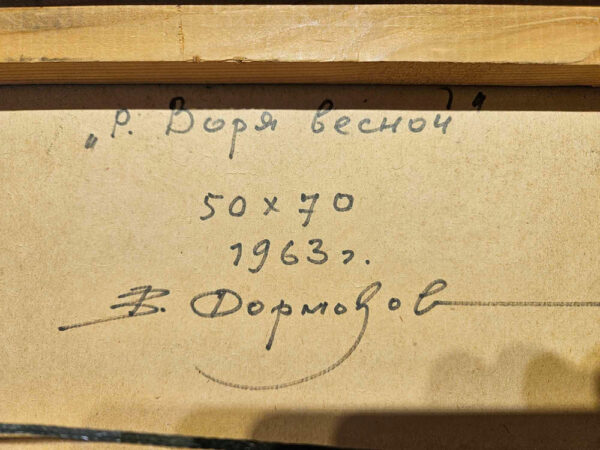 „р. Воря весной"
50 х 70
1963 г.
В. Формозов